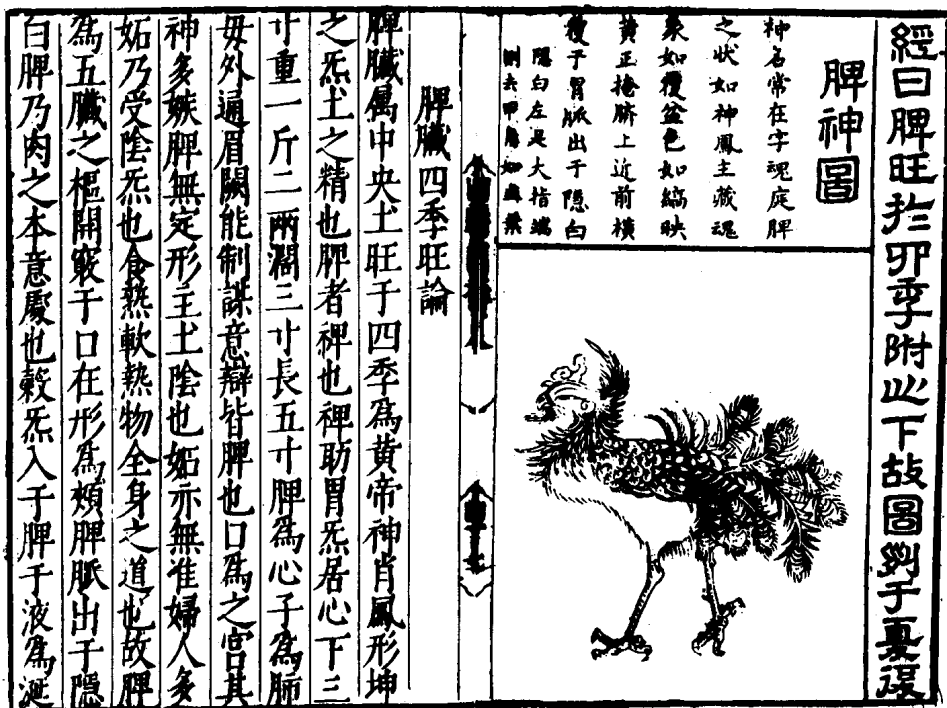 經曰脾旺扵四季附心下故圖列于夏後
脾神圖
神名常在字魂庭脾
之狀如神鳳主藏魂
象如覆盆色如縞映
黃正掩臍上近前橫
覆于胃脈出于隱白
隱白左足大指端
側去甲角如韭葉
脾臟四季旺論
脾臟属中央土旺于四季為黃帝神肖鳳形坤
之炁土之精也脾者裨也裨助胃炁居心下三
寸重一斤二兩濶三寸長五寸脾為心子為肺
母外通眉闕能制謀意辯皆脾也口為之宫其
神多嫉脾無定形主土陰也妬亦無准婦人多
妬乃受陰炁也食熟軟熱物全身之道也故脾
為五臟之樞開竅于口在形為頰脾脈出于隱
白脾乃肉之本意處也穀炁入于脾于液為涎